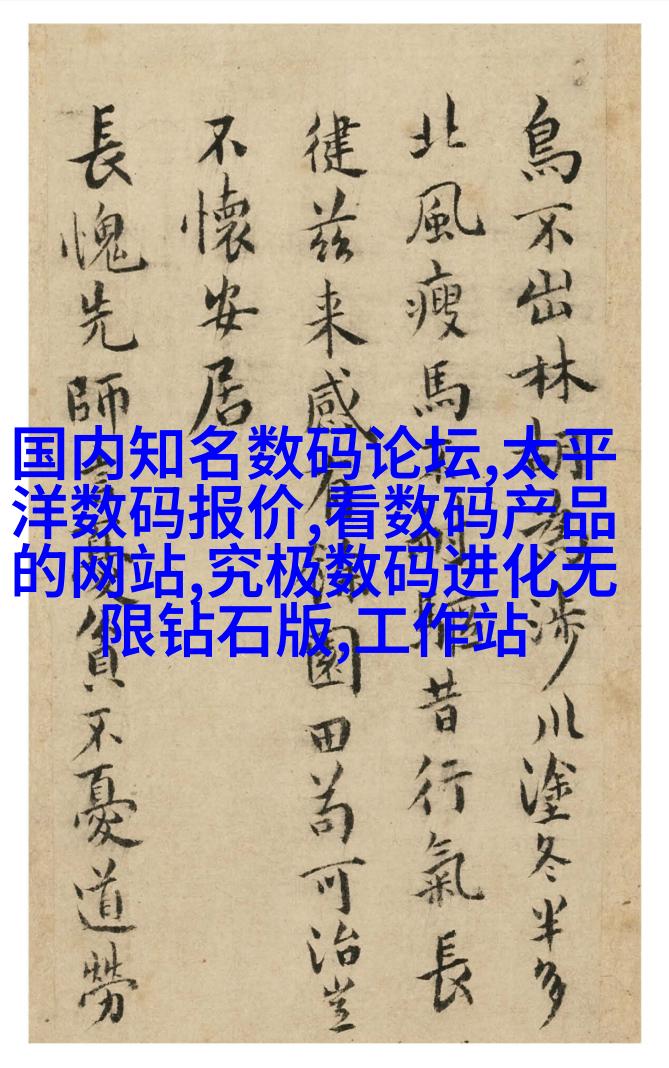 国内知名数码论坛,太平
洋数码报价,看数码产品
的网站,究极数码进化无
限钻石版,工作站
鳥不出林胡涉川塗冬半多
北風瘦馬昔行氣長
健茲来感園田苟可治豈
不懷安居
長愧先師貧不憂道勞